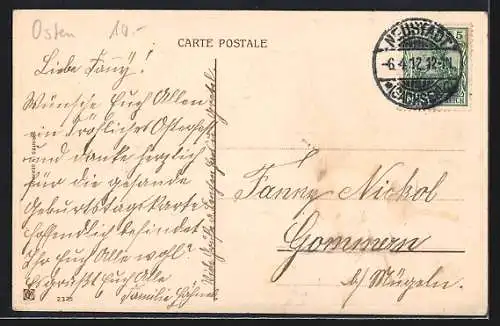 Osten 10.-
CARTE POSTALE
NEUSTADT
-6.4.12.12-1N.
*(SACHSEN)
5
Liebe Fanny!
Wünsche Euch Allen
ein Fröhliches Osterfest
und danke herzlich
für die gesande
Geburtstagskarte
hoffendlich befindet
Ihr Euch Alle wohl?
Es grüßt Euch Alle
Familie Hähne
Viele Grüße
Fanny Nickol
Gommern
b/ Mügeln.
2375